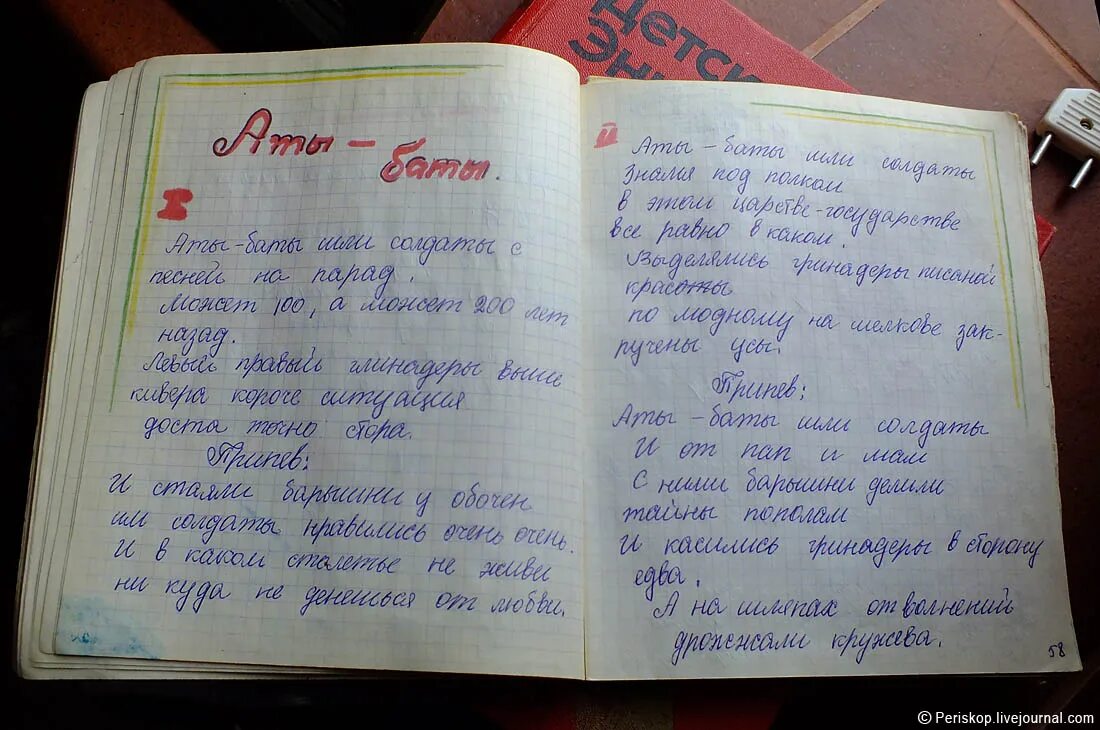 Детск
Эн
Аты –
баты.
I
Аты – баты шли солдаты с
песней на парад.
Может 100, а может 200 лет
назад.
Левый правый глинадеры выши
кивера короче ситуация
доста точно стора.
Припев:
И стаяли барышни у обочен
им солдаты нравились очень очень.
И в каком столетье не живи
ни куда не денешься от любви.
II
Аты – баты шли солдаты
Знамя под полком
в этом царстве-государстве
все равно в каком.
Выделялись гринадеры писаной
красоты
по модному на шелкове зак-
ручены усы.
Припев:
Аты – баты шли солдаты
И от пап и мам
С ними барышни делили
тайны пополам
И касились гринадеры в сторону
едва.
А на шляпах от волнений
дрожжали кружева.
58
© Periskop.livejournal.com